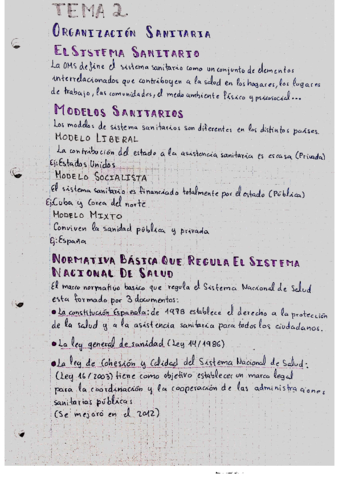 TEMA 2
ORGANIZACIÓN SANITARIA
EL SISTEMA SANITARIO
La OMS define el sistema sanitario como un conjunto de elementos
interrelacionados que contribuyen a la salud en los hogares, los lugares
de trabajo, las comunidades, el medo ambiente físico y psicosocial...
MODELOS SANITARIOS
Los modelos de sistema sanitarios son diferentes en los distintos países.
MODELO LIBERAL
La contribución del estado a la asistencia sanitaria es escasa (Privada)
Ej: Estados Unidos
MODELO SOCIALISTA
El sistema sanitario es financiado totalmente por el estado (Pública)
Ej: Cuba y Corea del norte
MODELO MIXTO
Conviven la sanidad pública y privada
Ej: España
NORMATIVA BÁSICA QUE REGULA EL SISTEMA
NACIONAL DE SALUD
El marco normativo basico que regula el Sistema Nacional de Salud
esta formado por 3 documentos:
• La constitución Española: de 1978 establece el derecho a la protección
de la salud y a la asistencia sanitaria para todos los ciudadanos.
• La ley general de sanidad (Ley 14/1986)
• La ley de Cohesión y Calidad del Sistema Nacional de Salud:
(Ley 16/2003) tiene como objetivo establecer un marco legal
para la coordinación y la cooperación de las administraciones
sanitarias públicas
(Se mejoró en el 2012)